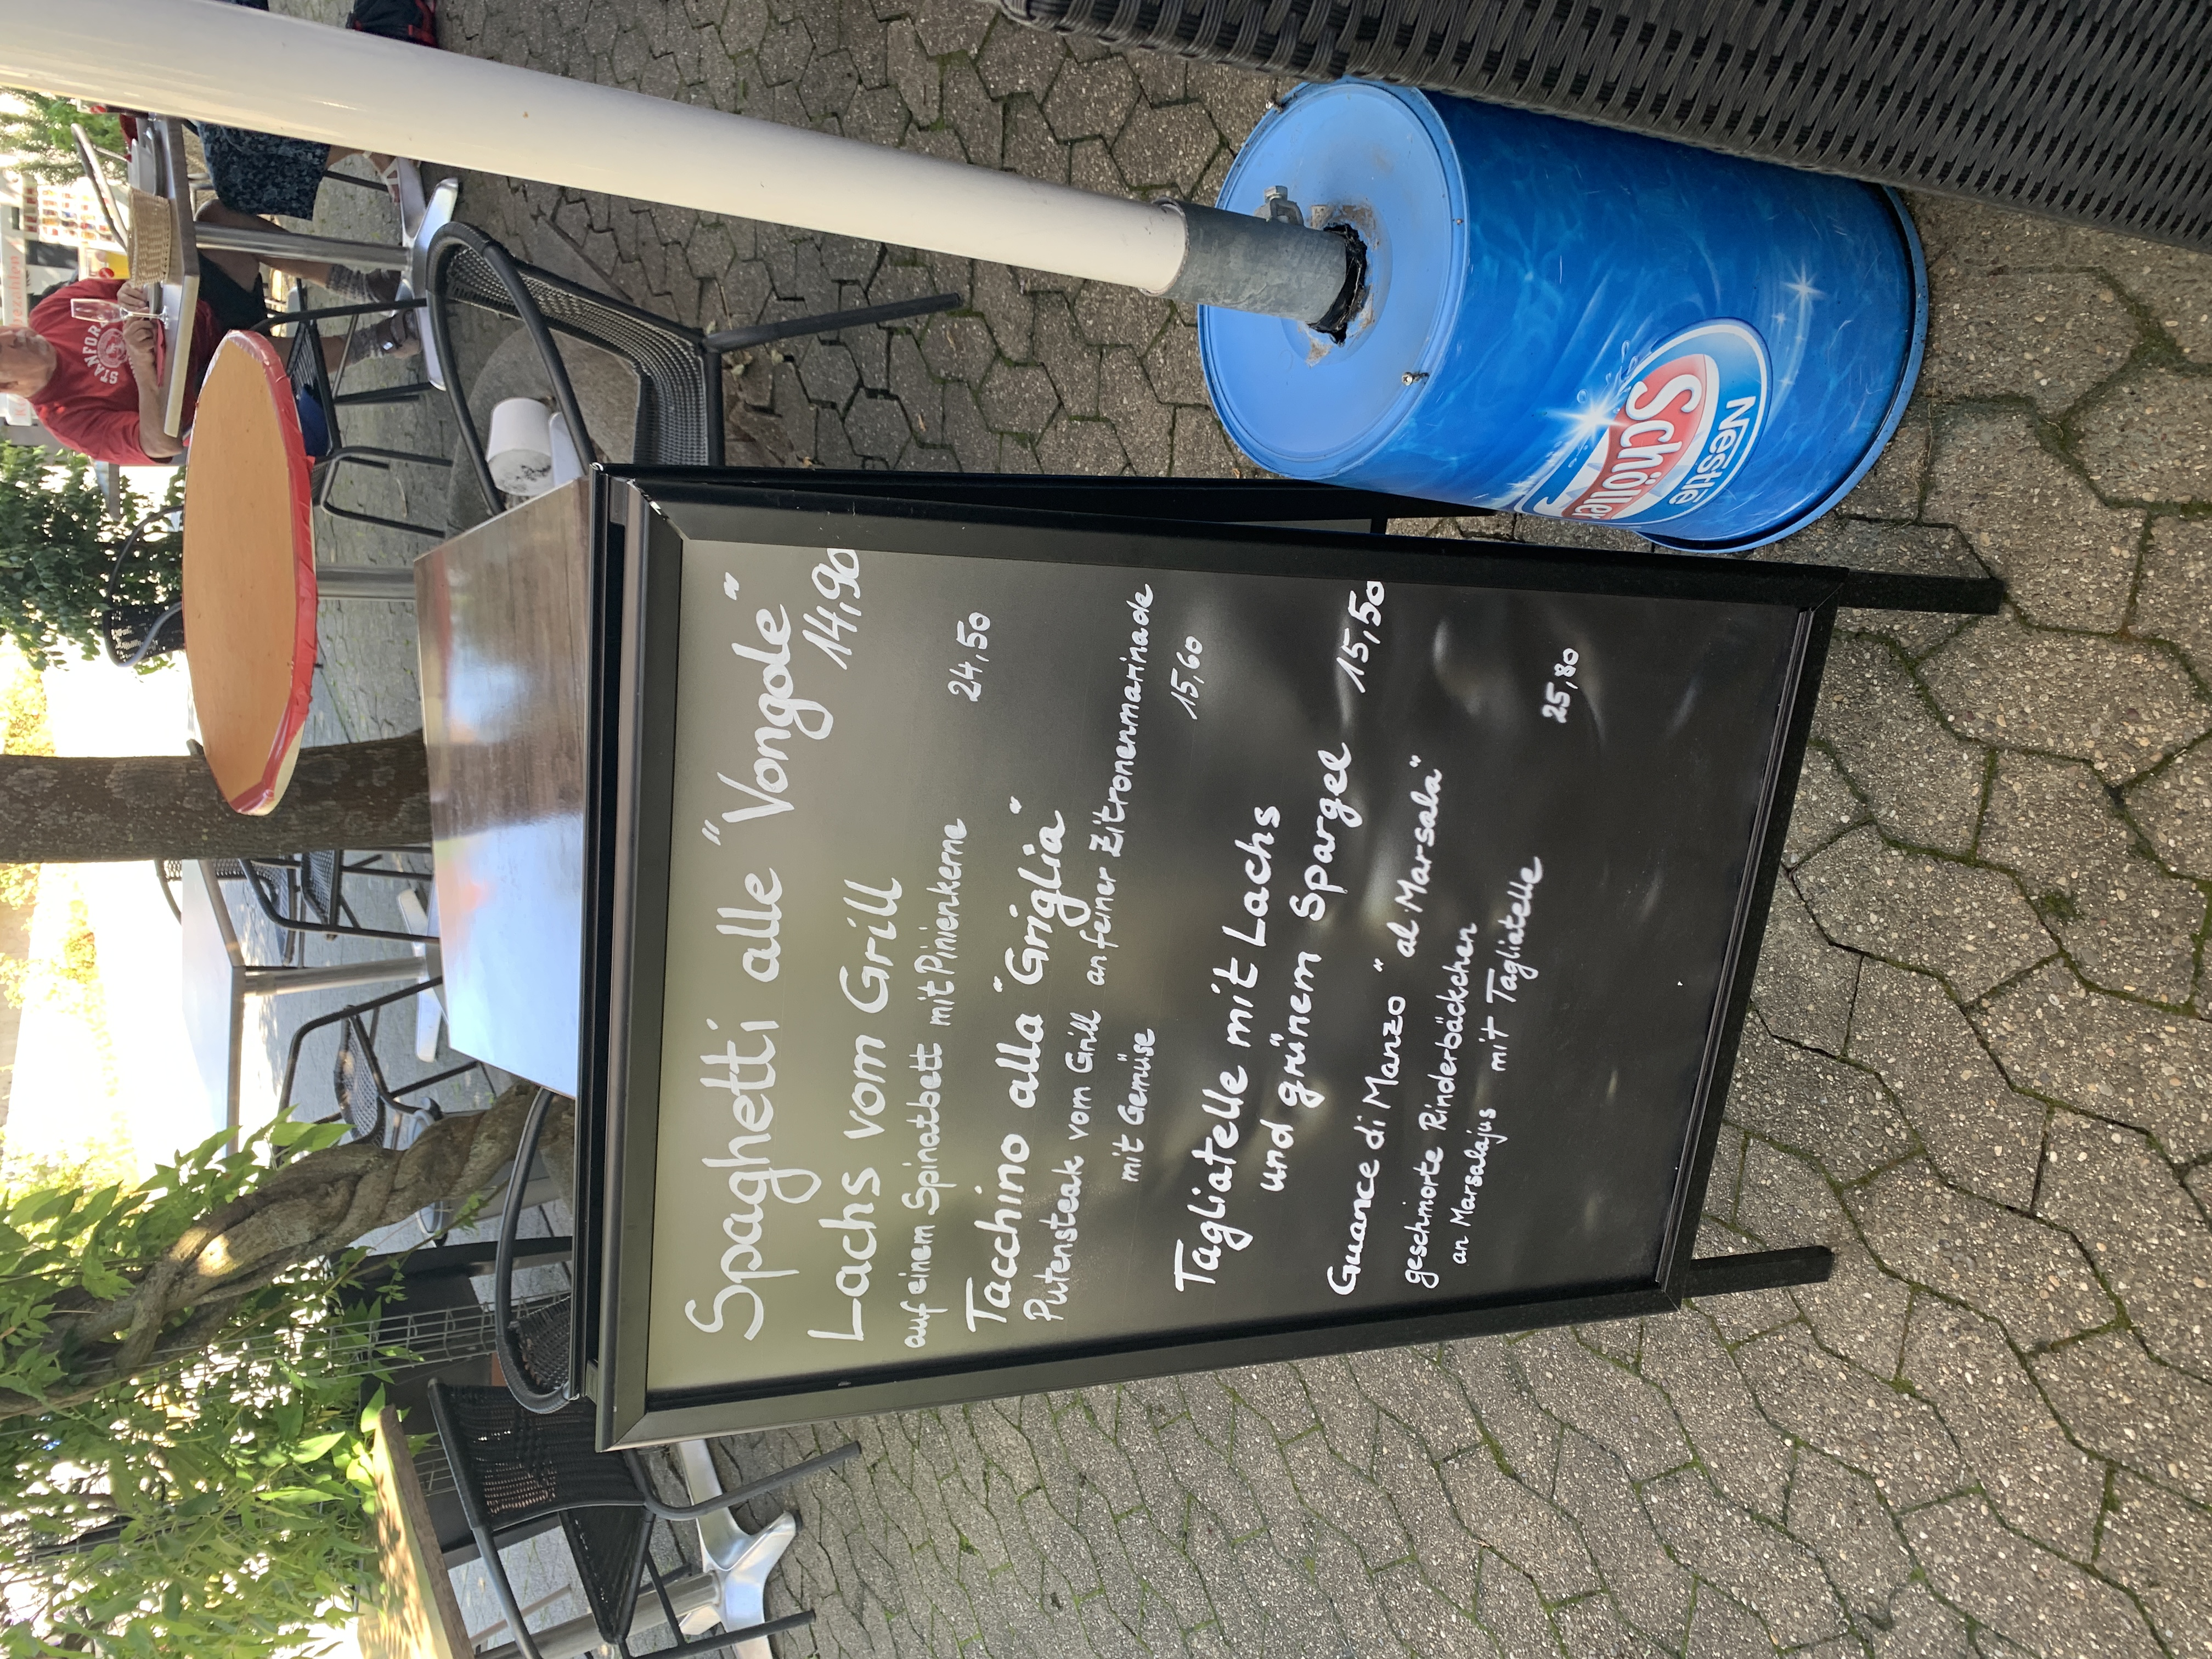 Spaghetti alle "Vongole"
14,90
Lachs vom Grill
auf einem Spinatbett mit Pinienkerne
24,50
Tacchino alla "Griglia"
Putensteak vom Grill an feiner Zitronenmarinade
mit Gemüse
15,60
Tagliatelle mit Lachs
und grünem Spargel
15,50
Guance di Manzo "al Marsala"
geschmorte Rinderbäckchen
an Marsalajus mit Tagliatelle
25,80
Nestlé
Schöller
STANFORD